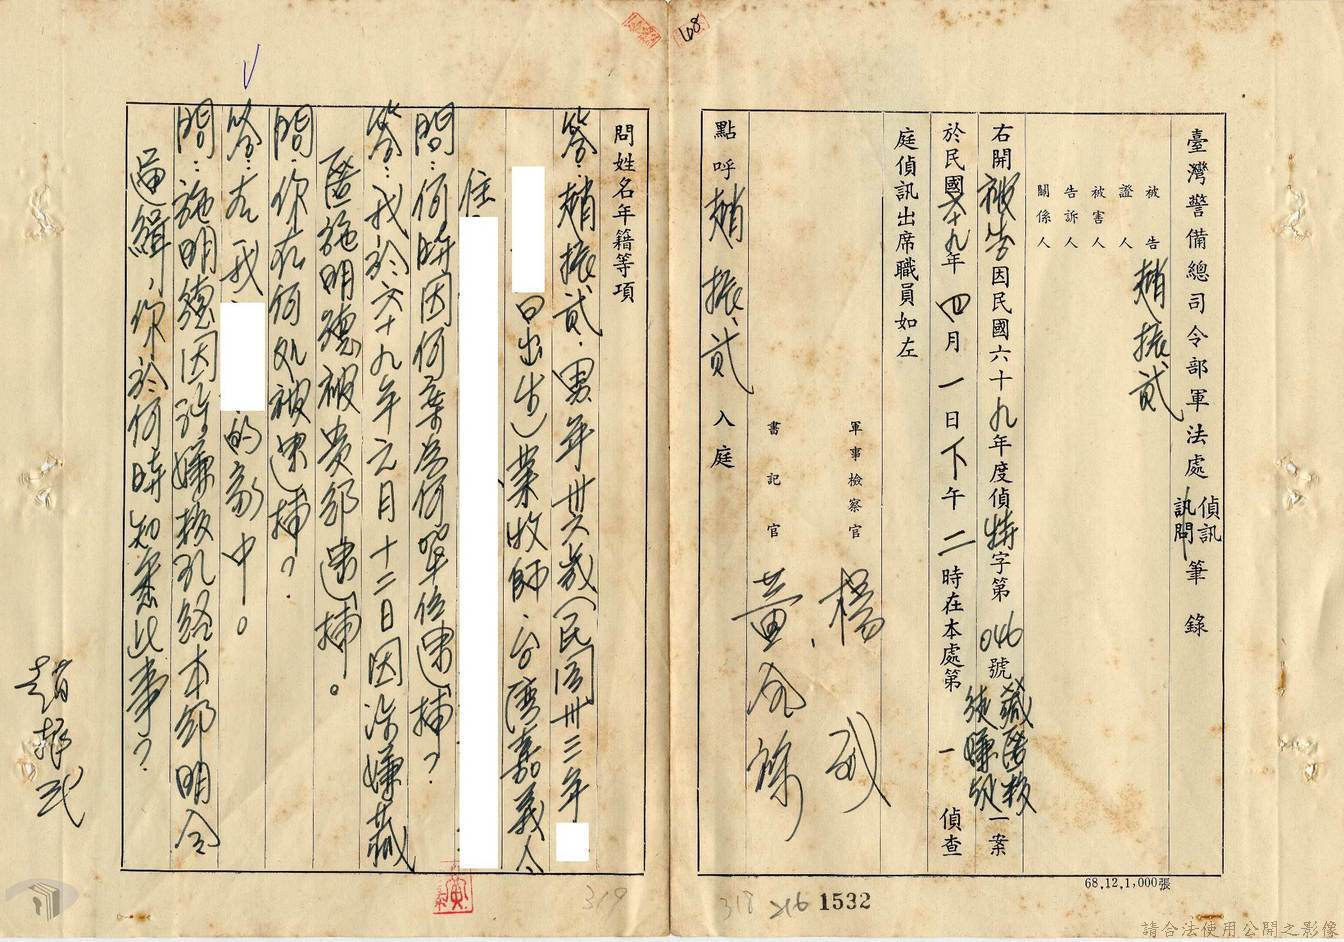 臺灣警備總司令部軍法處偵訊訊問筆錄
被告 趙振貳
證人
被害人
告訴人
關係人
右開被告因民國六十九年度偵特字第046號藏匿叛徒嫌疑一案
於民國六十九年四月一日下午二時在本處第一偵查
庭偵訊出席職員如左
軍事檢察官 楊
書記官 黃
點呼趙振貳入庭
問姓名年籍等項
答:趙振貳,男年卅六歲(民國卅三年
日出生)業牧師,台灣嘉義人
住
問:何時因何案為何單位逮捕?
答:我於六十九年元月十二日因涉嫌藏
匿施明德被貴部逮捕。
問:你在何処被逮捕?
答:在我
的家中。
問:施明德因涉嫌叛亂經本部明令
通緝,你於何時知悉此事?
趙振貳
108
68.12.1,000張
318 216 1532
319
請合法使用公開之影像